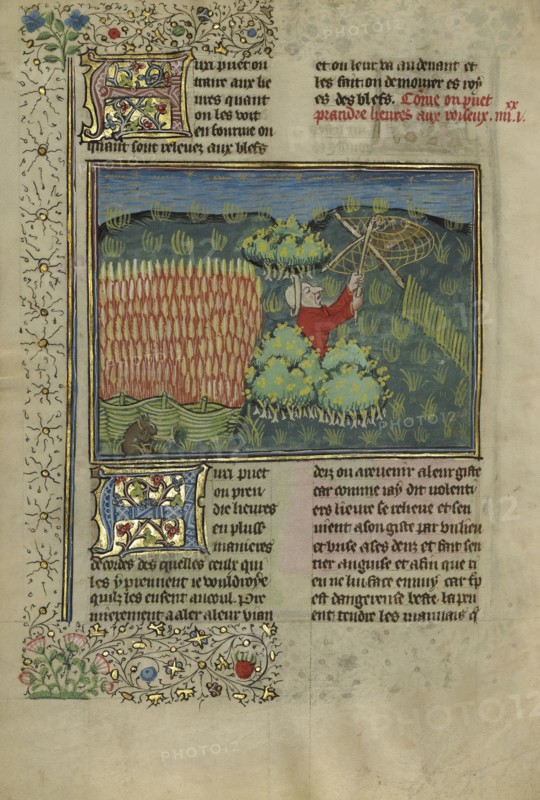 Auxi puet on
traire aux lie
vres quant
on les voit
en fourme ou
quant sont relevez aux blefs
et on leur va au devant et
les fait on demourer es roy
es des blefs. Come on puet
prandre lievres aux roiseux. xx iiii. v.
Auxi puet
on pren
dre lievres
en pluss
manieres
de cordes des quelles ceulx qui
les y prennent ie vouldroye
quilz les eusent au coul. Pre
mierement a aler a leur vian
deiz ou avenir a leur giste
car comme iay dit volenti
ers lievre se relieve et sen
vient a son giste par un lieu
et a ses deiz et fait sen
tier et afin que ri
en ne lui face ennuy car
est dangereuse beste la pu
ent tendre les mauvais q
PHOTO12